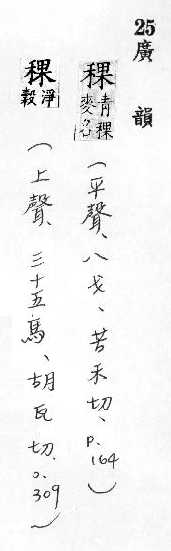 25 廣韻
稞 青稞麥名 (平聲、八戈、苦禾切、P.164)
稞 淨穀 (上聲、三十五馬、胡瓦切、P.309)